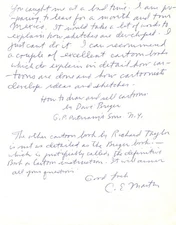 You caught me at a bad time. I am pre-
paring to leave for a month and tour
Mexico. It would take a lot of work to
explain how sketches are developed. I
just cant do it. I can recommend
a couple of excellent cartoon books
which do explain in detail how car-
toons are done and how cartoonists
develop ideas and sketches.
How to draw and sell cartoons
by Dave Breger
G. P. Putnam's Sons N.Y.
The other cartoon book by Richard Taylor
is not as detailed as the Breger book
which is justifiably called, the definitive
book on cartoon instruction. It will answer
all your questions
Good luck
C. E. Martin